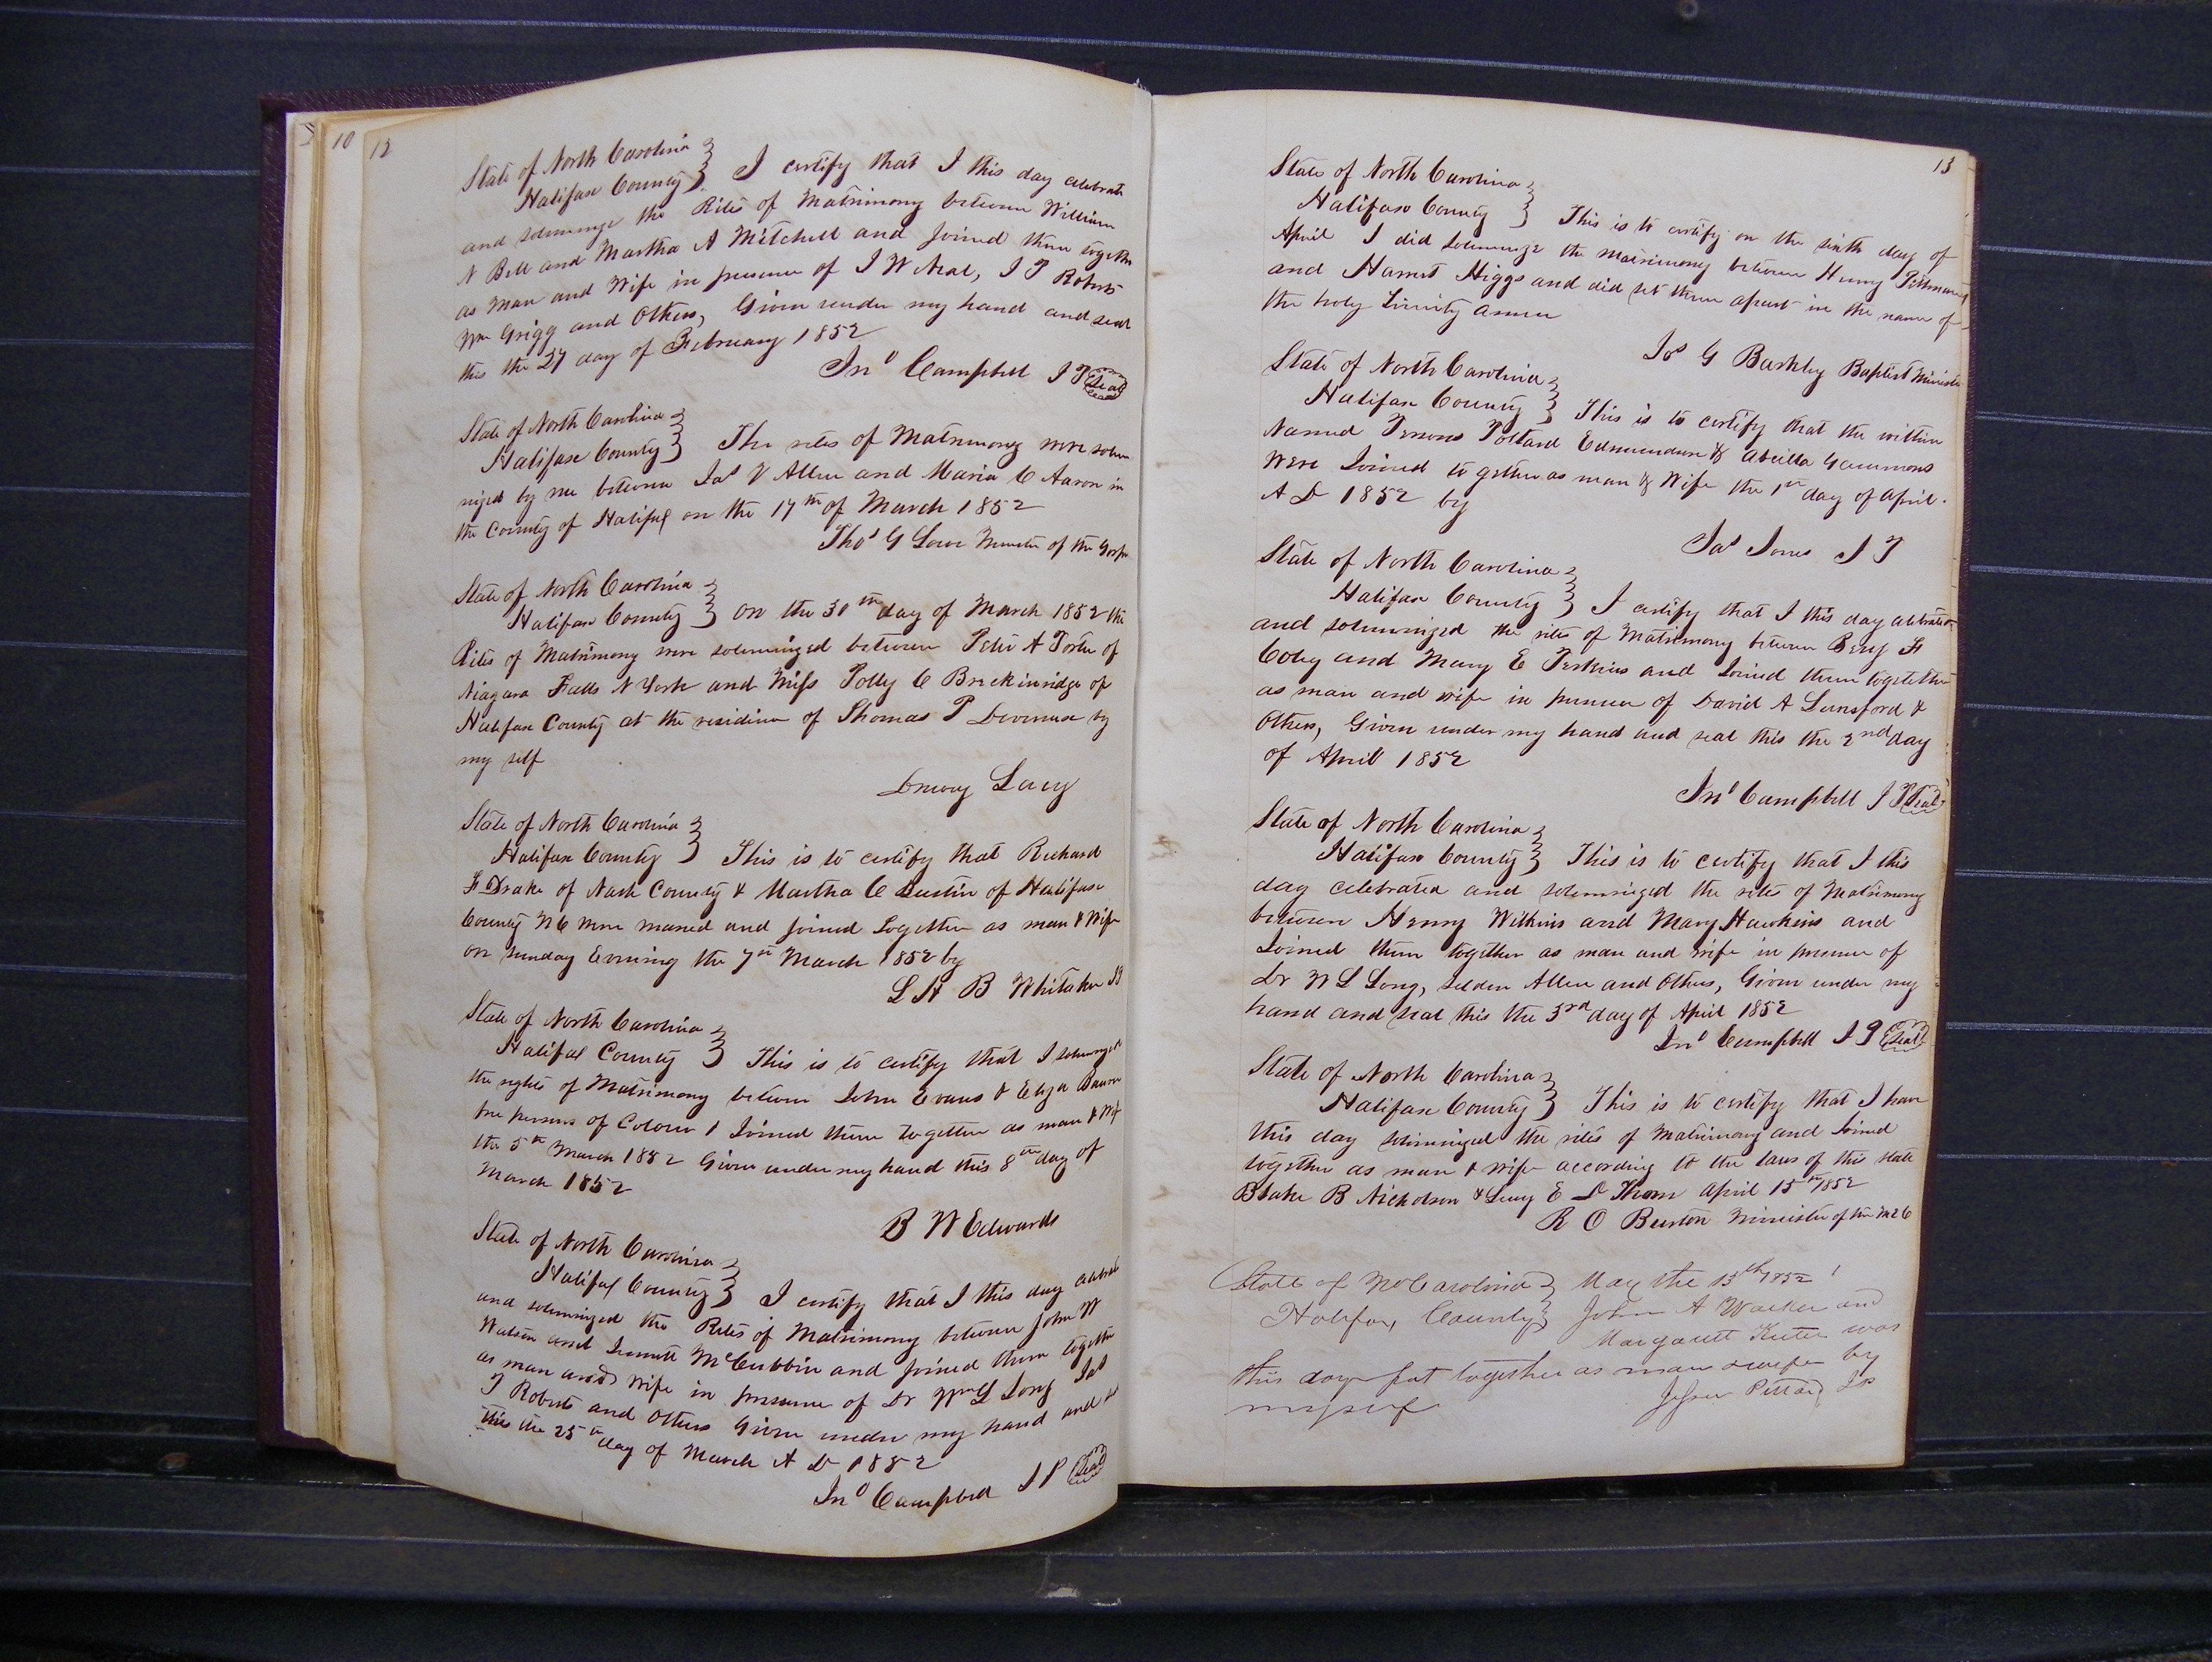 10
12
State of North Carolina
Halifax County } I certify that I this day celebrate
and solemnize the Rites of Matrimony between William
N Bell and Martha A Mitchell and joined them together
as man and Wife in presence of J W Neal, J T Roberts
Wm Grigg and Others, Given under my hand and seal
this the 27 day of February 1852
Jno Campbell J P Seal
State of North Carolina
Halifax County } The rites of Matrimony were solem
nized by me between Jas V Allen and Maria C Aaron in
the County of Halifax on the 17th of March 1852
Thos G Lowe Minister of the Gosp
State of North Carolina
Halifax County } on the 30th day of March 1852 the
Rites of Matrimony were solemnized between Peter A Porter of
Niagara Falls N York and Miss Polly C Breckinridge of
Halifax County at the residence of Thomas P Devereux by
my self
Drury Lacy
State of North Carolina
Halifax County } This is to certify that Richard
F Drake of Nash County & Martha C of Halifax
County N C were maried and joined together as man & Wife
on Sunday Evening the 7th March 1852 by
L H B Whitaker
State of North Carolina
Halifax County } This is to certify that I solemnized
the rights of Matrimony between John Evans & Eliza
free persons of Colour & Joined them together as man & Wif
the 5th March 1852 Given under my hand this 8th day of
March 1852
B W Edwards
State of North Carolina
Halifax County } I certify that I this day celebrate
and solemnized the Rites of Matrimony between John W
Watson and McCubbin and joined them together
as man and Wife in presence of Dr Wm L Long Jas
T Roberts and others Given under my hand and
this the 25th day of March A D 1852
Jno Campbell J P Seal
13
State of North Carolina
Halifax County } This is to certify on the sixth day of
April I did solemnize the matrimony between Henry
and Harriet Higgs and did set them apart in the name of
the holy Trinity Amen
Jos G Barkley Baptist Minister
State of North Carolina
Halifax County } This is to certify that the within
Named Persons Pollard Edmundson & Gammons
were Joined together as man & Wife the 1st day of April.
A D 1852 by
Jas Jones J P
State of North Carolina
Halifax County } I certify that I this day celebrated
and solemnized the rites of Matrimony between Berry F
Coley and Mary E Perkins and Joined them together
as man and wife in presence of David A Lunsford &
Others, Given under my hand and seal this the 2nd day
of April 1852
Jno Campbell J P Seal
State of North Carolina
Halifax County } This is to certify that I this
day celebrated and solemnized the rites of Matrimony
between Henny Wilkins and Mary Hawkins and
Joined them together as man and wife in presence of
Dr W L Long, Selden Allen and Others, Given under my
hand and seal this the 3rd day of April 1852
Jno Campbell J P Seal
State of North Carolina
Halifax County } This is to certify that I have
this day solemnized the rites of Matrimony and Joined
together as man & wife according to the laws of this state
Blake B Nicholson & Lucy E D Thorn April 15th 1852
R O Burton Minister of the M E C
State of No Carolina } May the 13th 1852
Halifax County } John A Walker and
Margarett Keeter was
this day put together as man & wife by
myself
Jesper Pittard JP